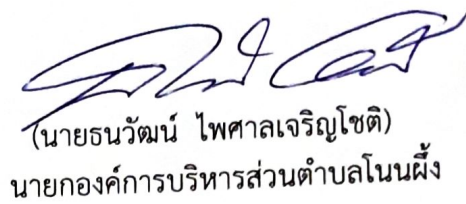 (นายธนวัฒน์ ไพศาลเจริญโชติ)
นายกองค์การบริหารส่วนตำบลโนนผึ้ง